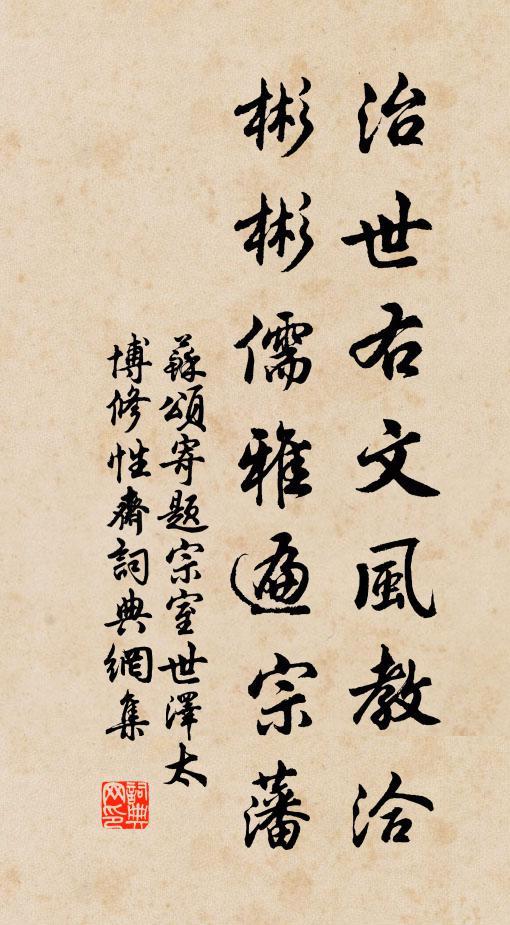 治世右文風教洽
彬彬儒雅遍宗藩
蘇頌寄題宗室世澤太
博修性齋詞典網集
詞典網印